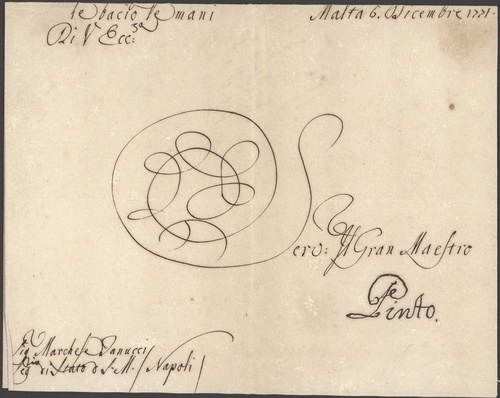 le bacio le mani
Di V. Ecc:za
Malta 6. Dicembre 1771.
Serv: Il Gran Maestro
Pinto.
Sig.r Marchese Tanucci
Seg.rio di Stato di S. M. / Napoli /